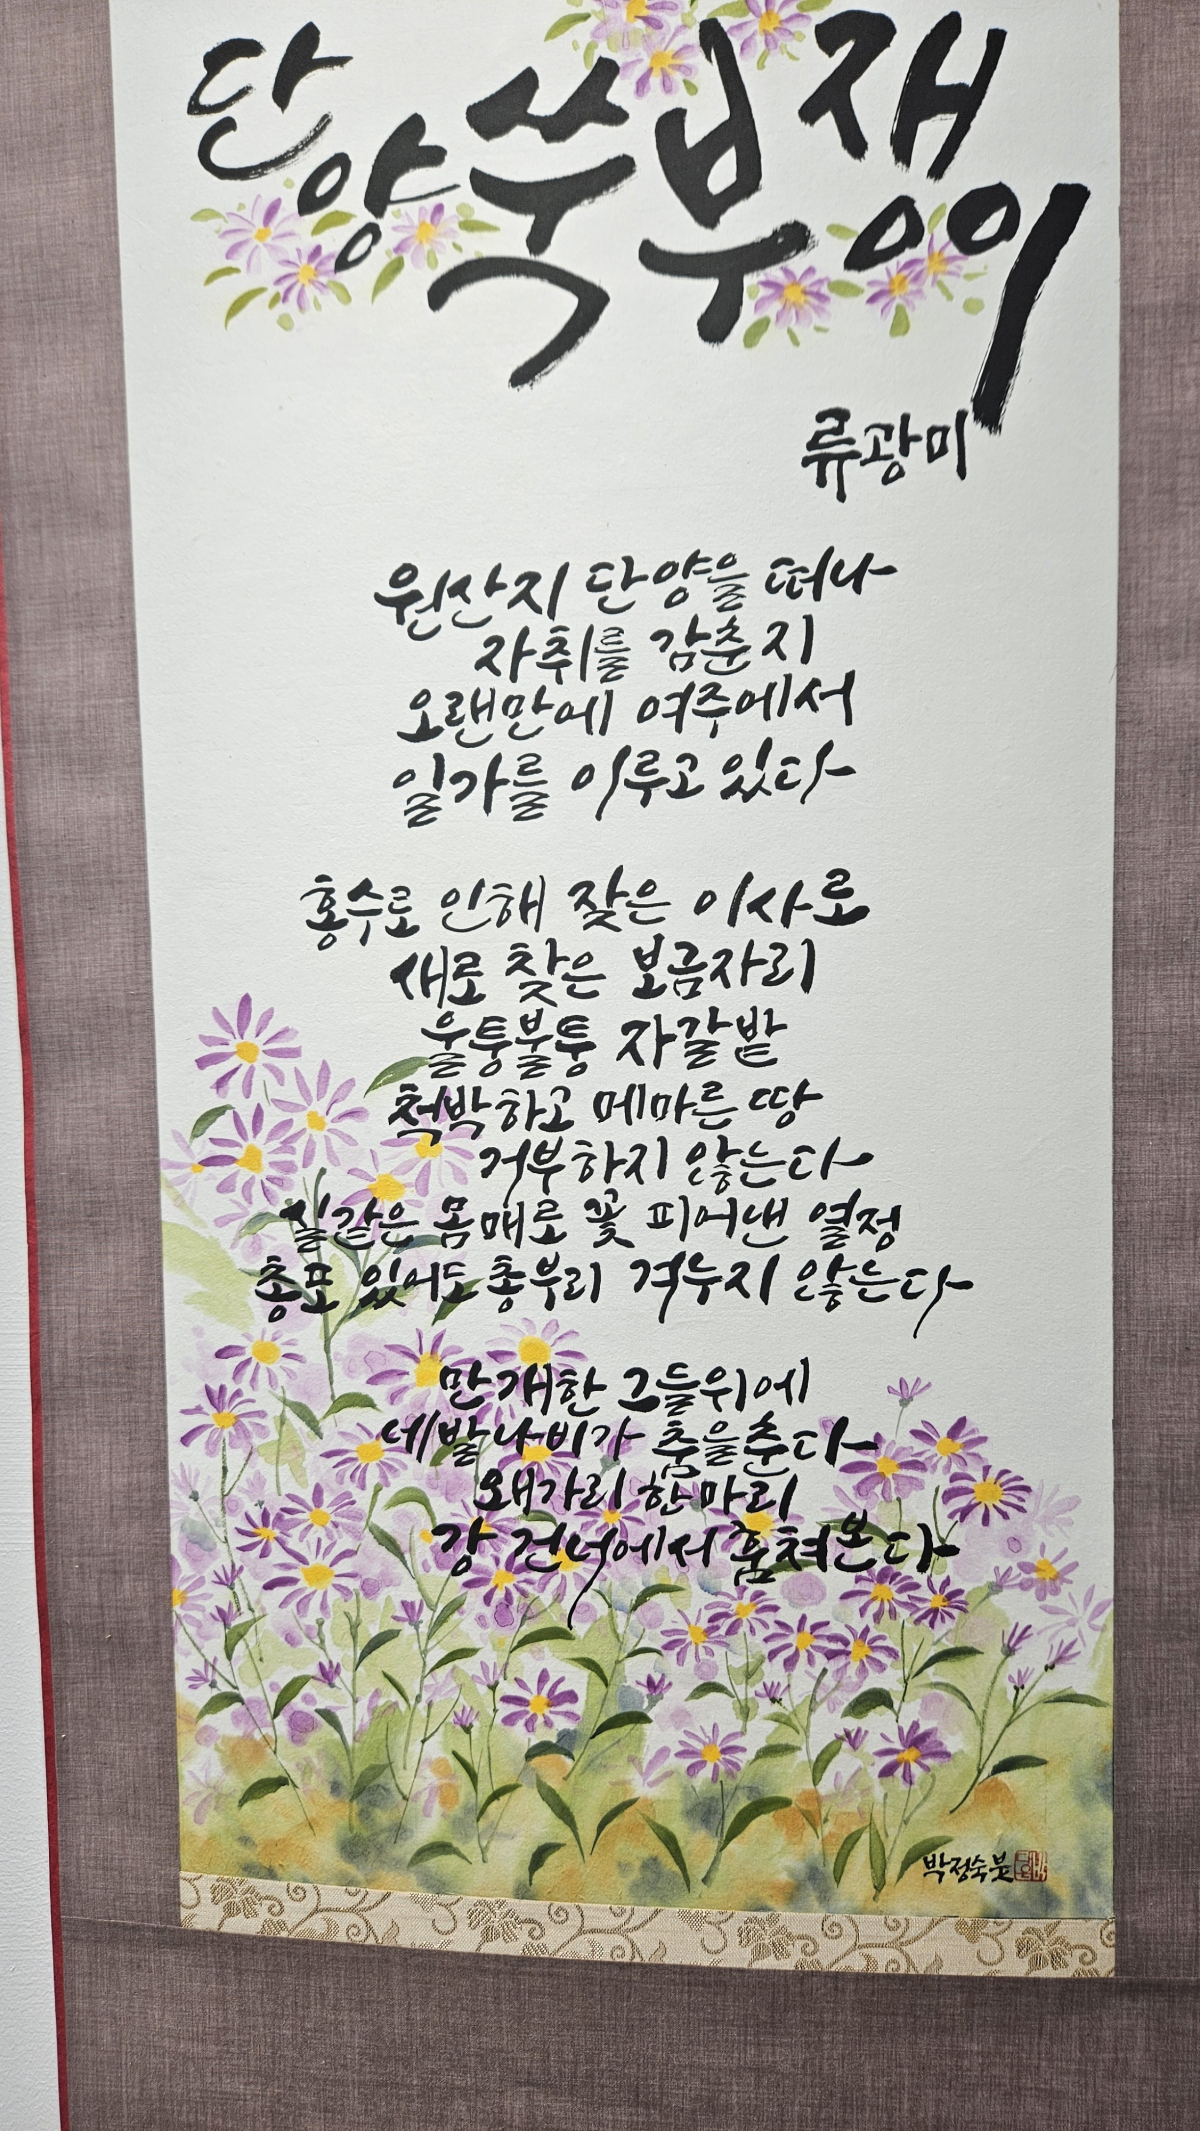 단양쑥부쟁이
류광미
원산지 단양을 떠나
자취를 감춘 지
오랜만에 여주에서
일가를 이루고 있다
홍수로 인해 잦은 이사로
새로 찾은 보금자리
울퉁불퉁 자갈밭
척박하고 메마른 땅
거부하지 않는다
실같은 몸매로 꽃 피어낸 열정
총포 있어도 총부리 겨누지 않는다
만개한 그들위에
네발나비가 춤을춘다
왜가리 한마리
강 건너에서 훔쳐본다
박정숙붓